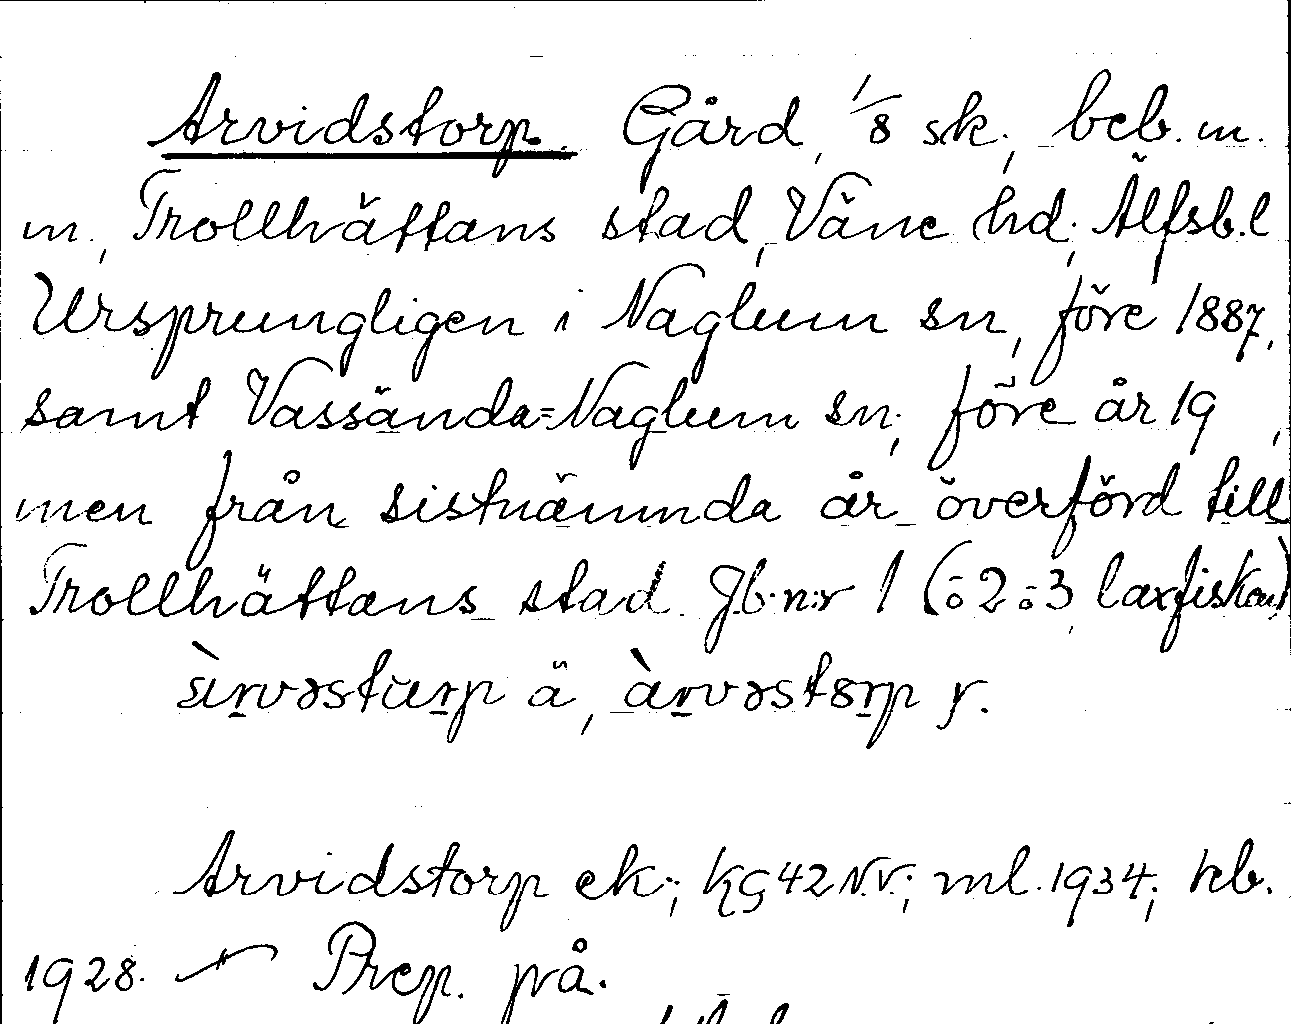 Arvidstorp. Gård, 1/8 sk., beb. m.
m., Trollhättans stad, Väne hd, Älfsb.l
Ursprungligen i Naglum sn, före 1887,
samt Vassända=Naglum sn, före år 19 ,
men från sistnämnda år överförd till
Trollhättans stad. Jb.n:r 1 (o: 2 o: 3 laxfisken)
àrvəstɑrp ä, àrvəstɤrp y.
Arvidstorp ek.; kg 42 N.V.; ml. 1934; kb.
1928. Prep. på.